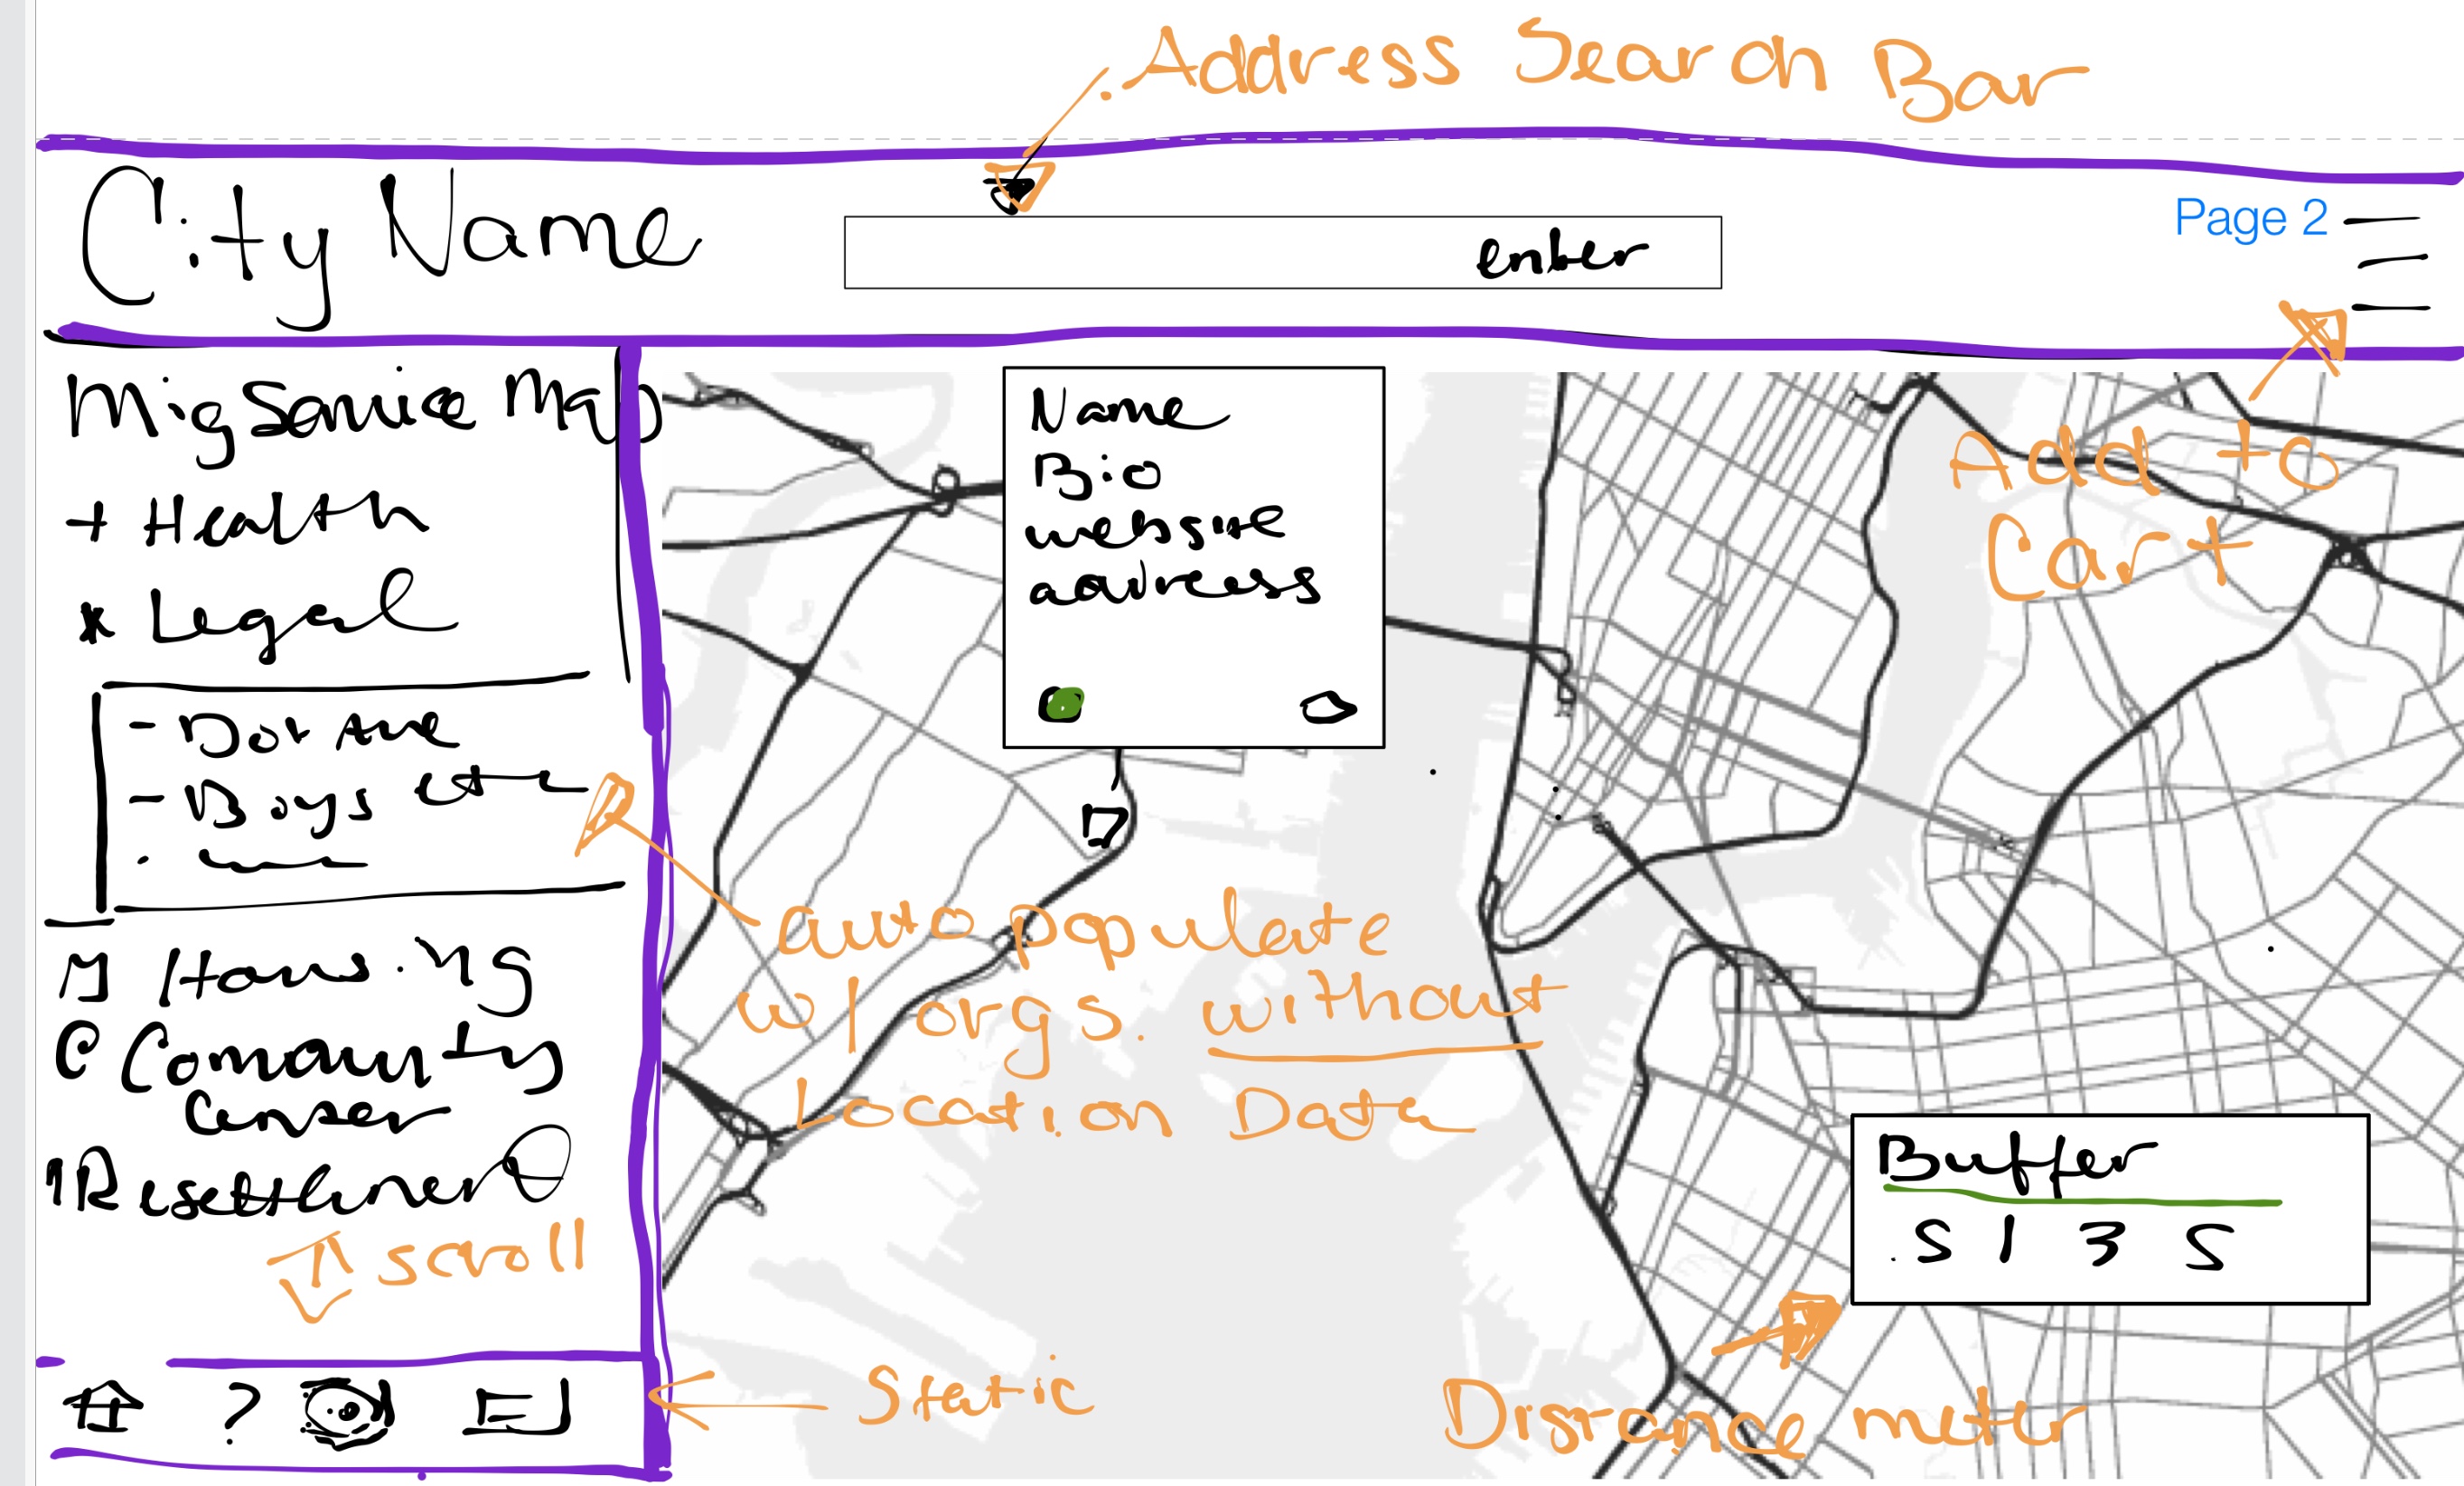 Address Search Bar
City Name
enter
Page 2
Mig Service Map
+ Health
* Legal
- Dot Ave
- Boys
Housing
C Community
Center
Resettlement
scroll
?
Name
Bio
website
address
Add to
Cart
auto populate
w/ orgs. without
Location Data
Static
Buffer
.5 1 3 5
Distance meter